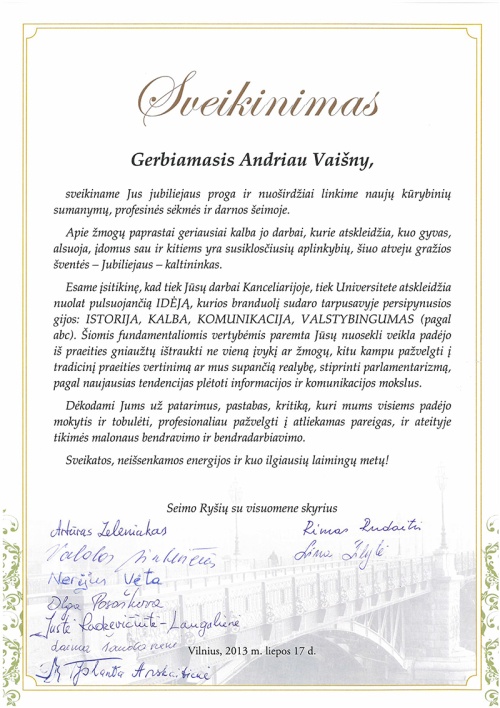 Sveikinimas
Gerbiamasis Andriau Vaišny,
sveikiname Jus jubiliejaus proga ir nuoširdžiai linkime naujų kūrybinių
sumanymų, profesinės sėkmės ir darnos šeimoje.
Apie žmogų paprastai geriausiai kalba jo darbai, kurie atskleidžia, kuo gyvas,
alsuoja, įdomus sau ir kitiems yra susiklosčiusių aplinkybių, šiuo atveju gražios
šventės – Jubiliejaus – kaltininkas.
Esame įsitikinę, kad tiek Jūsų darbai Kanceliarijoje, tiek Universitete atskleidžia
nuolat pulsuojančią IDĖJĄ, kurios branduolį sudaro tarpusavyje persipynusios
gijos: ISTORIJA, KALBA, KOMUNIKACIJA, VALSTYBINGUMAS (pagal
abc). Šiomis fundamentaliomis vertybėmis paremta Jūsų nuosekli veikla padėjo
iš praeities gniaužtų ištraukti ne vieną įvykį ar žmogų, kitu kampu pažvelgti į
tradicinį praeities vertinimą ar mus supančią realybę, stiprinti parlamentarizmą,
pagal naujausias tendencijas plėtoti informacijos ir komunikacijos mokslus.
Dėkodami Jums už patarimus, pastabas, kritiką, kuri mums visiems padėjo
mokytis ir tobulėti, profesionaliau pažvelgti į atliekamas pareigas, ir ateityje
tikimės malonaus bendravimo ir bendradarbiavimo.
Sveikatos, neišsenkamos energijos ir kuo ilgiausių laimingų metų!
Seimo Ryšių su visuomene skyrius
Artūras Zeleniakas
Rimas Rudaitis
Nerijus Vėta
Olga Posaškova
Justė Radzevičiūtė-Laugalienė
Vilnius, 2013 m. liepos 17 d.
Jolanta Anskaitienė